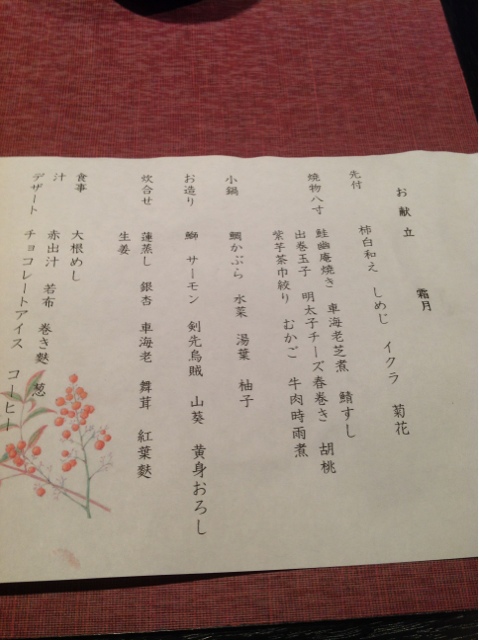 お献立
霜月
先付
柿白和え しめじ イクラ 菊花
焼物八寸
鮭幽庵焼き 車海老芝煮 鯖すし
出巻玉子 明太子チーズ春巻き 胡桃
紫芋茶巾絞り むかご 牛肉時雨煮
小鍋
鯛かぶら 水菜 湯葉 柚子
お造り
鰤 サーモン 剣先烏賊 山葵 黄身おろし
炊合せ
蓮蒸し 銀杏 車海老 舞茸 紅葉麩
生姜
食事
大根めし
汁
赤出汁 若布 巻き麩 葱
デザート
チョコレートアイス コーヒー